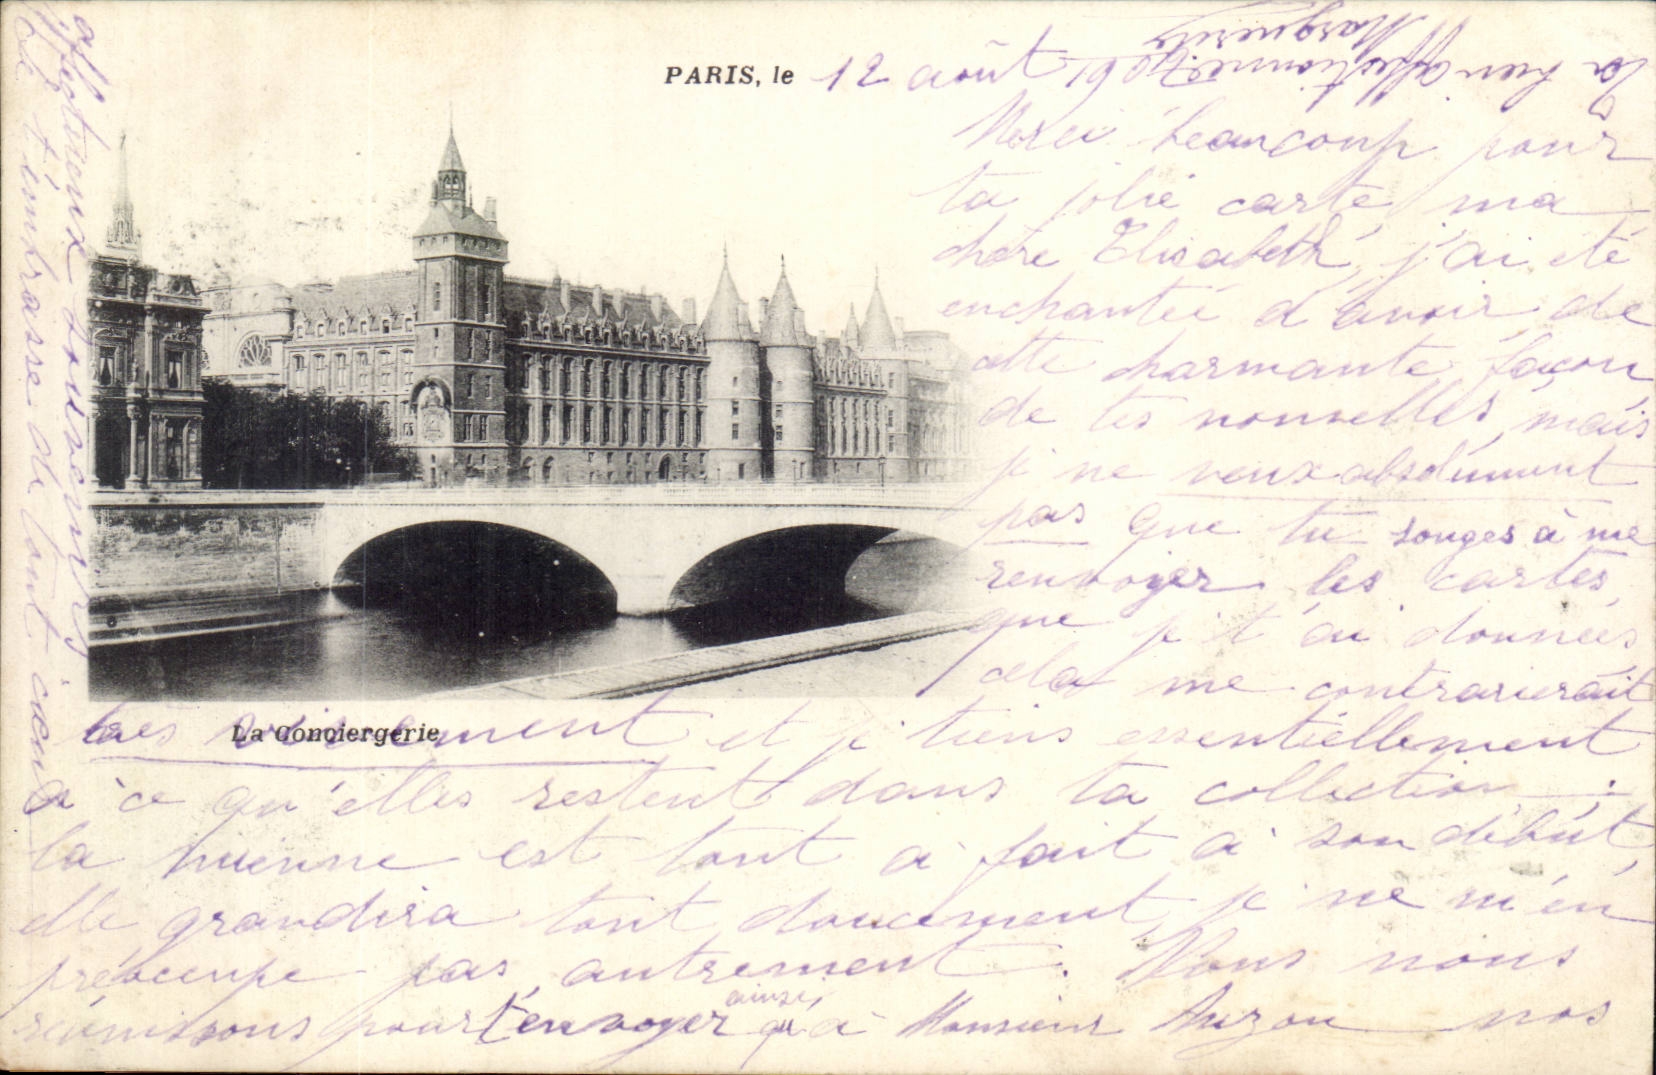 PARIS, le 12 août 1902
Merci beaucoup pour
ta jolie carte, ma
chère Elisabeth, j'ai été
enchantée d'avoir de
cette charmante façon
de tes nouvelles, mais
je ne veux absolument
pas que tu songes à me
renvoyer les cartes
que je t'ai données
cela me contrarierait
très vivement et je tiens essentiellement
La Conciergerie
à ce qu'elles restent dans ta collection :
la mienne est tout à fait à son début,
elle grandira tout doucement, je ne m'en
préoccupe pas autrement. Nous nous
réunissons pour t'envoyer ainsi qu'à Monsieur Auzou nos
affectueux souvenirs
et t'embrasse de tout cœur
Ta bien affectionnée
Marguerite